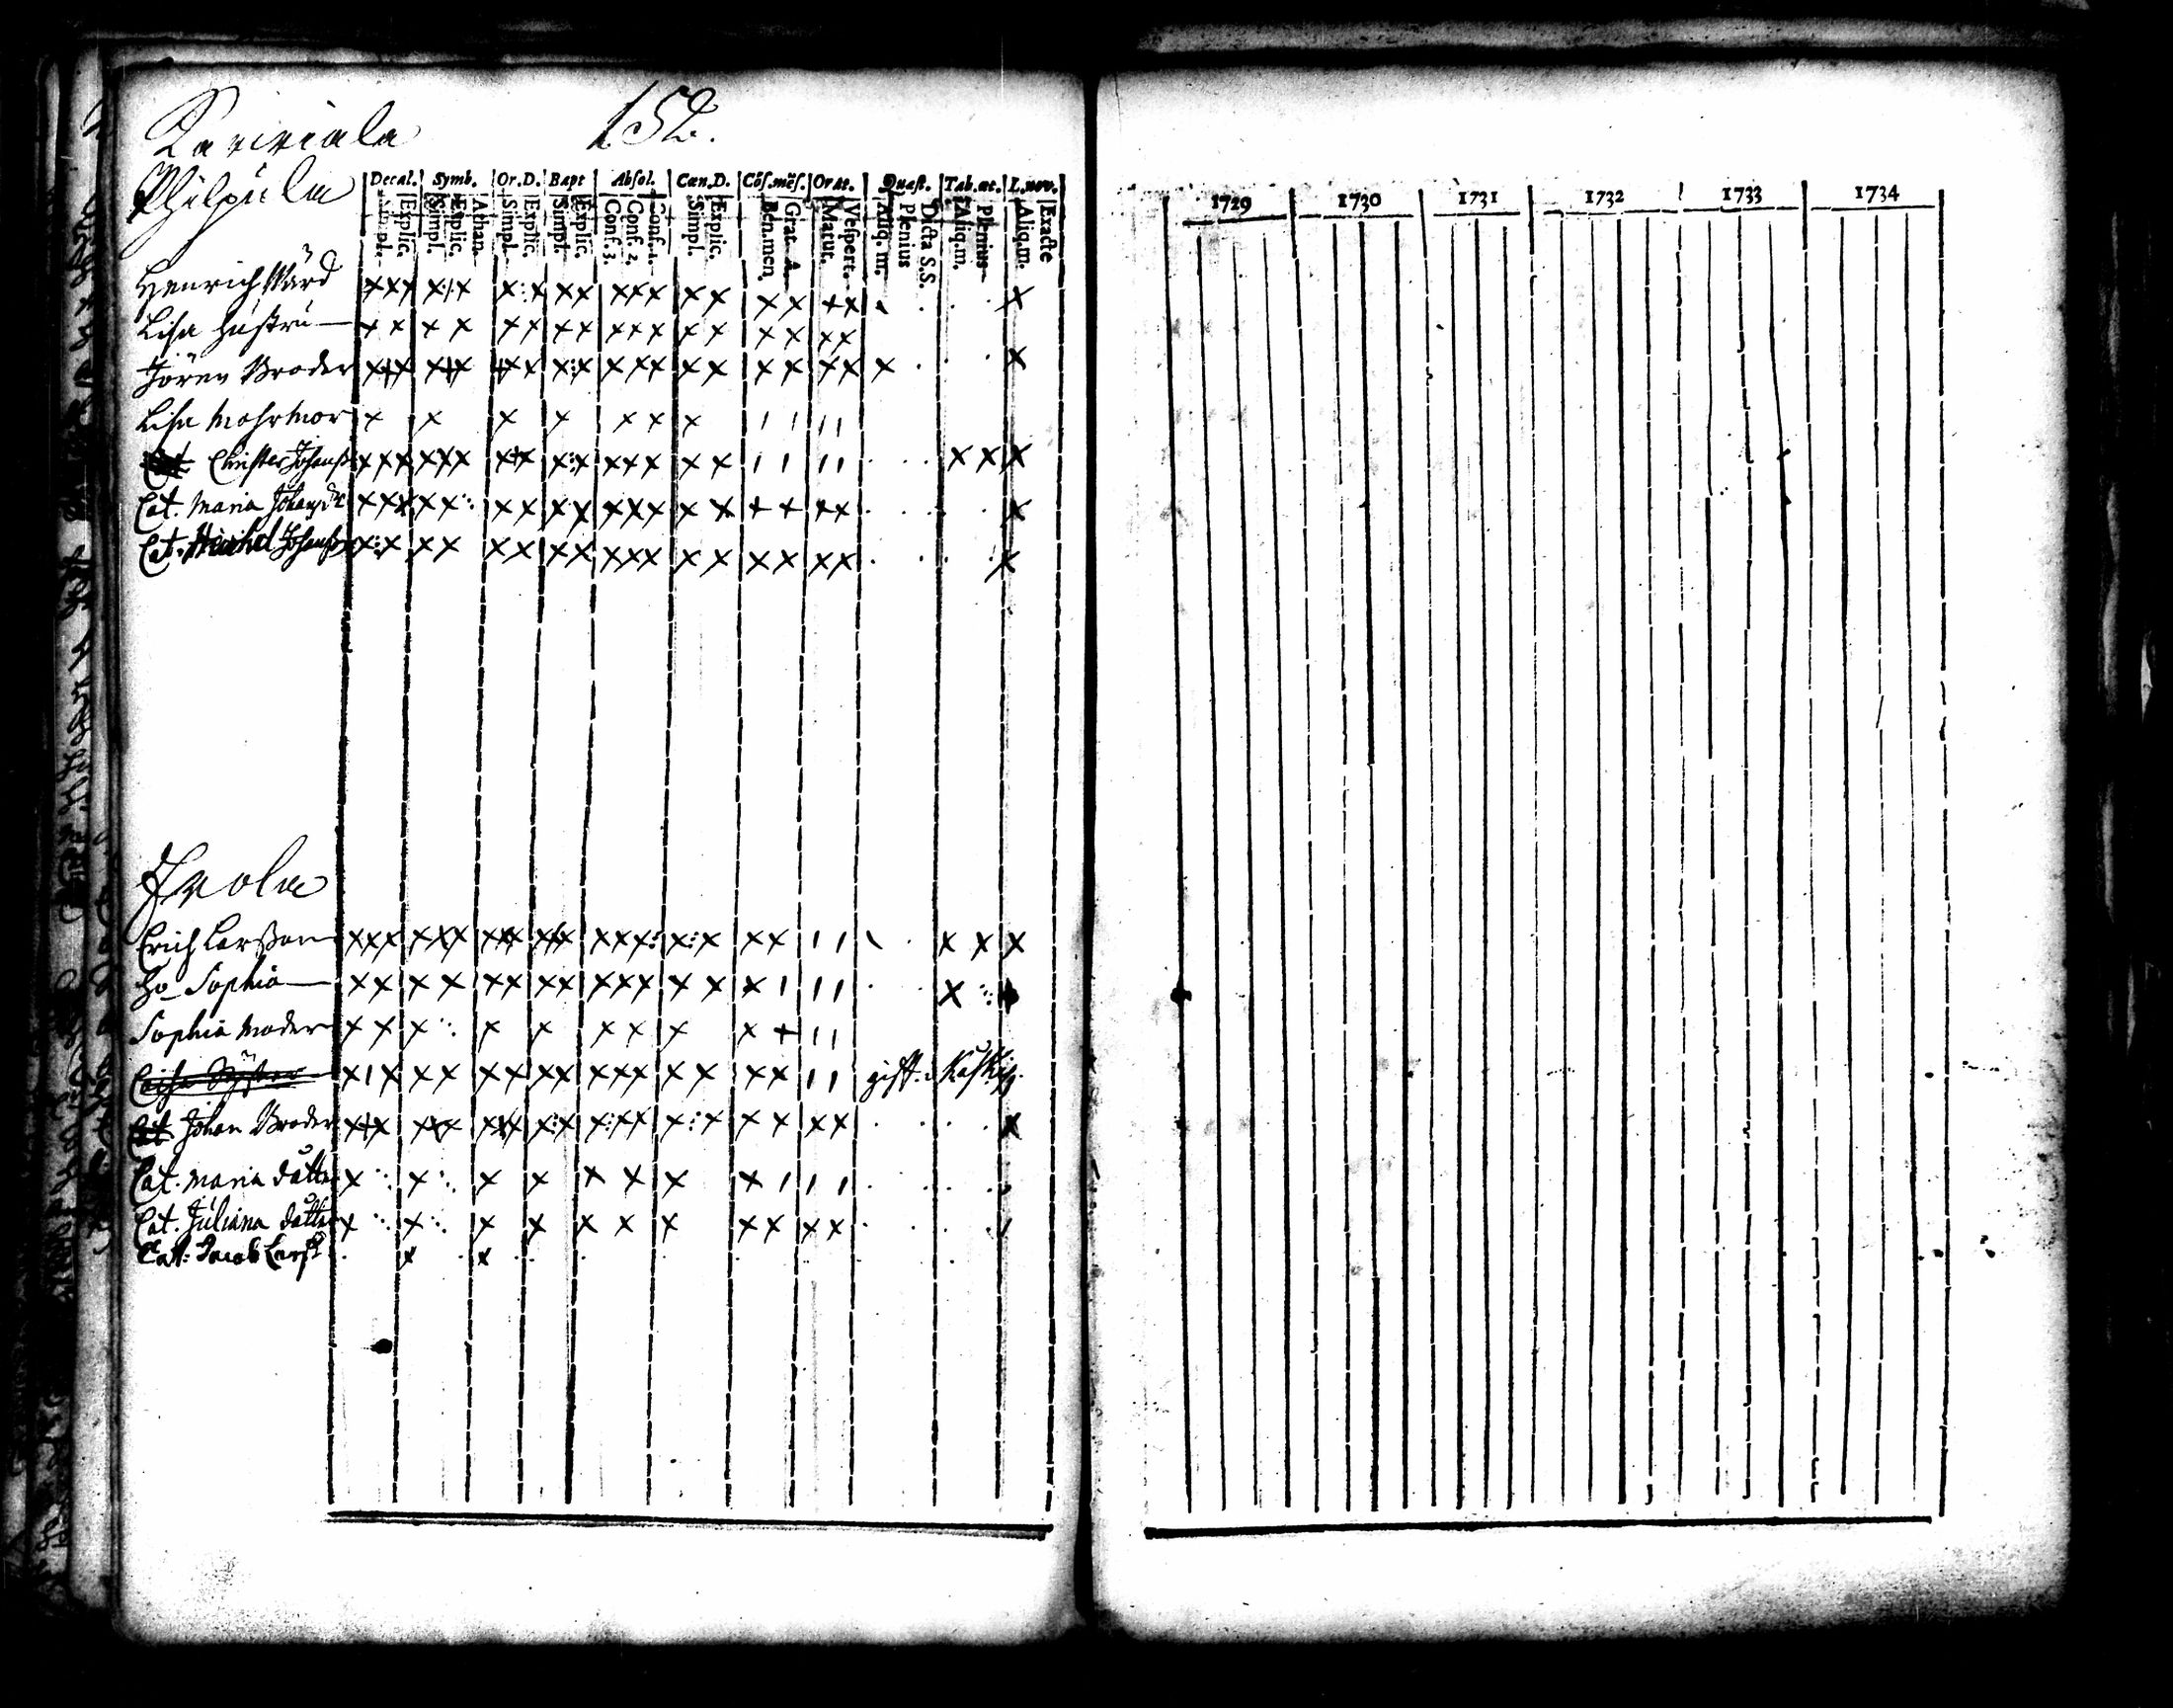 Karviala 152.
Philpula
Decal. Symb. Or.D. Bapt Absol. Cæn.D. Cōſ.mēſ. Orat. Quæſt. Tab.œc. L.nov.
Simpl. Explic. Simpl. Explic. Athan. Simpl. Explic. Simpl. Explic. Conf. 3. Conf. 2. Conf. 1. Simpl. Explic. Ben.men. Grat. A. Matut. Veſpert. Aliq. m. Plenius Dicta S.S. Aliq.m. Plenius Aliq.m. Exacte
Henrich Mård
Lisa hustru
Jören Broder
Lisa Mohrmor
Christer Johanss
Cat. Maria Johansdr
Cat. Johanss
Erola
Erich Larsson
Ho Sophia
Sophia Moder
Caisa Syster gift. i
Cat Johan Broder
Cat. Maria dotter
Cat. Juliana dotter
Cat. Jacob Larss
1729 1730 1731 1732 1733 1734